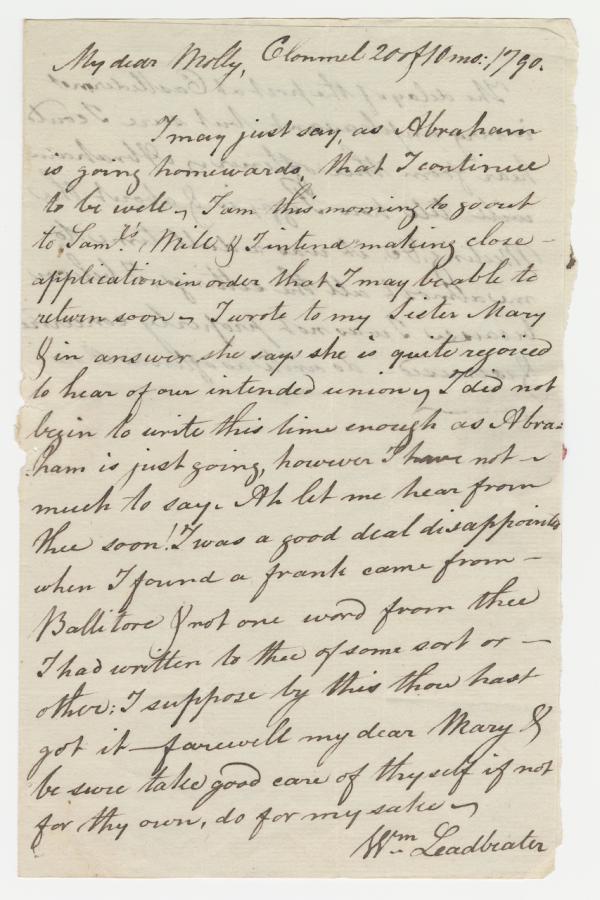 My dear Molly, Clonmel 20 of 10 mo: 1790.
I may just say, as Abraham
is going homewards, that I continue
to be well, I am this morning to go out
to Saml.s Mill & I intend making close
application in order that I may be able to
return soon, I wrote to my Sister Mary
& in answer she says she is quite rejoiced
to hear of our intended union, I did not
begin to write this time enough as Abra=
ham is just going, however I have not
much to say. Ah let me hear from
thee soon! I was a good deal disappointed
when I found a frank came from –
Ballitore & not one word from thee
I had written to thee of some sort or –
other: I suppose by this thou hast
got it – farewell my dear Mary &
be sure take good care of thyself if not
for thy own, do for my sake,
Wm Leadbeater